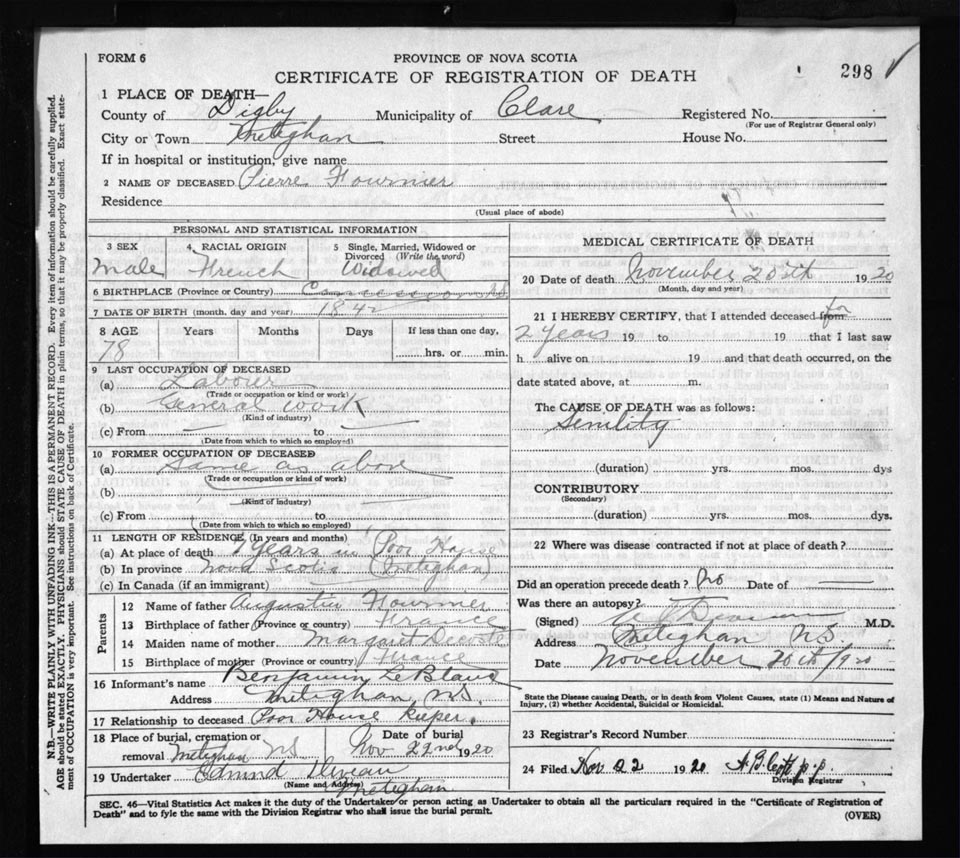 FORM 6
PROVINCE OF NOVA SCOTIA
CERTIFICATE OF REGISTRATION OF DEATH
298
1 PLACE OF DEATH—
County of Digby Municipality of Clare Registered No.
(For use of Registrar General only)
City or Town Meteghan Street House No.
If in hospital or institution, give name
2 NAME OF DECEASED Pierre Fournier
Residence
(Usual place of abode)
PERSONAL AND STATISTICAL INFORMATION
3 SEX 4 RACIAL ORIGIN 5 Single, Married, Widowed or Divorced (Write the word)
Male French Widowed
6 BIRTHPLACE (Province or Country) N.S.
7 DATE OF BIRTH (month, day and year) 1842
8 AGE Years Months Days If less than one day,
78 hrs. or min.
9 LAST OCCUPATION OF DECEASED
(a) Labour
(Trade or occupation or kind or work)
(b) General work
(Kind of industry)
(c) From to
(Date from which to which so employed)
10 FORMER OCCUPATION OF DECEASED
(a) Same as above
(Trade or occupation or kind of work)
(b)
(Kind of industry)
(c) From to
(Date from which to which so employed)
11 LENGTH OF RESIDENCE (In years and months)
(a) At place of death 7 years in Poor House
(b) In province Nova Scotia (Meteghan)
(c) In Canada (if an immigrant)
Parents
12 Name of father Augustin Fournier
13 Birthplace of father (Province or country) France
14 Maiden name of mother Margaret Decoste
15 Birthplace of mother (Province or country) France
16 Informant's name Benjamin LeBlanc
Address Meteghan N.S.
17 Relationship to deceased Poor House keeper.
18 Place of burial, cremation or removal Meteghan NS Date of burial Nov 22nd 1920
19 Undertaker Edmund
(Name and Address) Meteghan
MEDICAL CERTIFICATE OF DEATH
20 Date of death November 20th 1920
(Month, day and year)
21 I HEREBY CERTIFY, that I attended deceased from for
2 years 19 to 19 that I last saw
h alive on 19 and that death occurred, on the
date stated above, at m.
The CAUSE OF DEATH was as follows:
Senility
(duration) yrs. mos. dys
CONTRIBUTORY
(Secondary)
(duration) yrs. mos. dys.
22 Where was disease contracted if not at place of death?
Did an operation precede death? No Date of
Was there an autopsy?
(Signed) M.D.
Address Meteghan N.S.
Date November 20th 1920
State the Disease causing Death, or in death from Violent Causes, state (1) Means and Nature of
Injury, (2) whether Accidental, Suicidal or Homicidal.
23 Registrar's Record Number
24 Filed Nov 22 1920
Division Registrar
SEC. 46—Vital Statistics Act makes it the duty of the Undertaker or person acting as Undertaker to obtain all the particulars required in the "Certificate of Registration of
Death" and to fyle the same with the Division Registrar who shall issue the burial permit. (OVER)
N.B.—WRITE PLAINLY WITH UNFADING INK—THIS IS A PERMANENT RECORD. Every item of information should be carefully supplied.
AGE should be stated EXACTLY. PHYSICIANS should STATE CAUSE OF DEATH in plain terms, so that it may be properly classified. Exact state-
ment of OCCUPATION is very important. See instructions on back of Certificate.